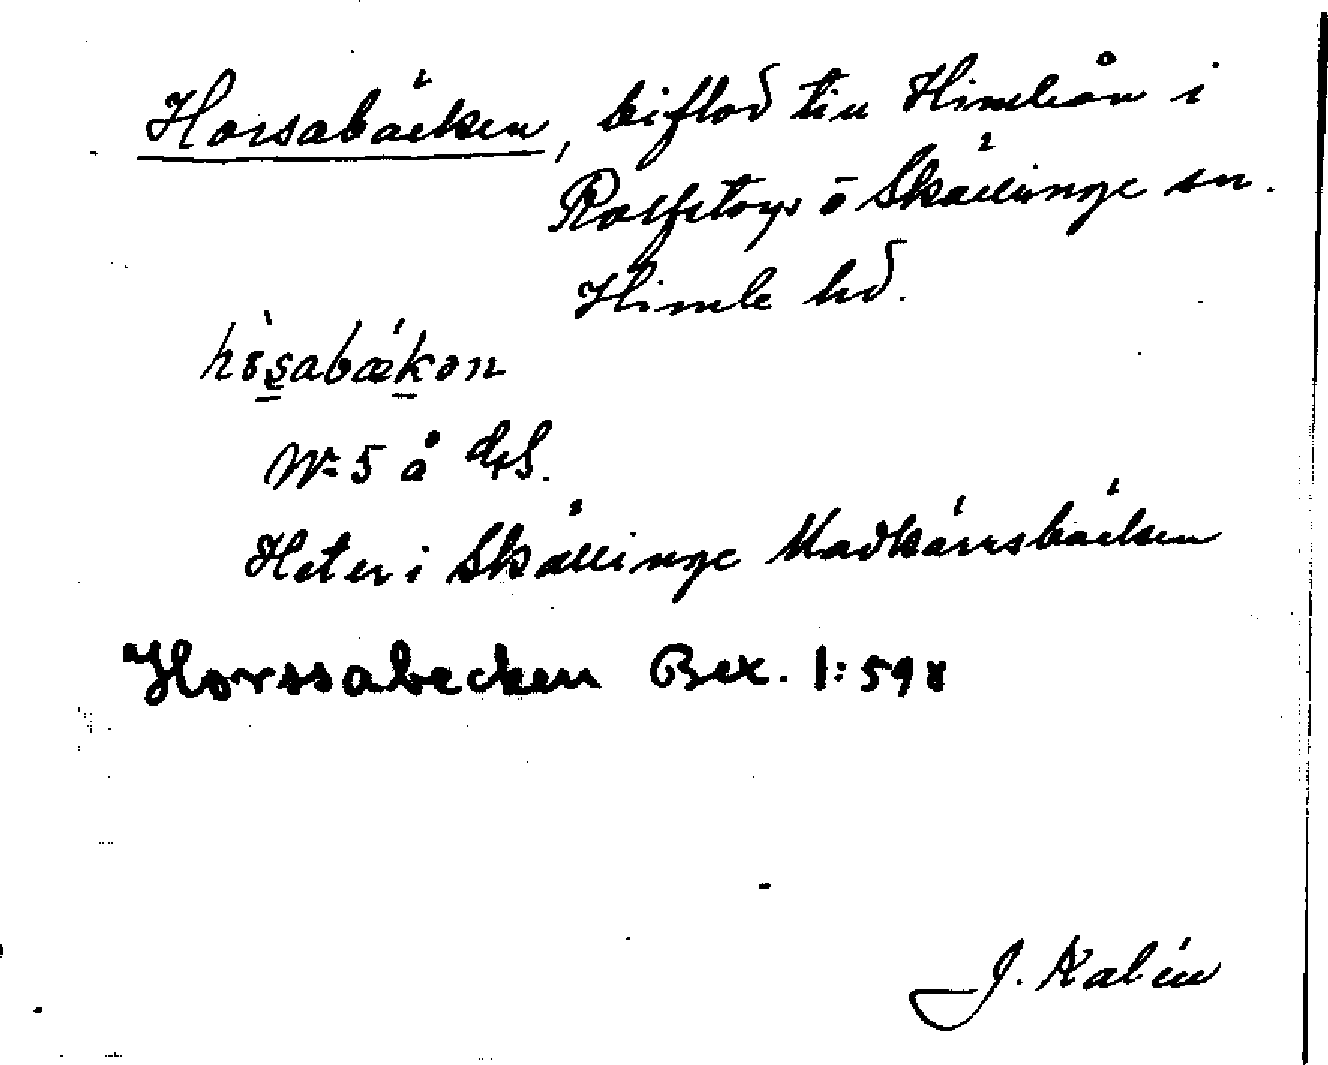 Horsabäcken, biflod till Himleån i
Rolfstorps o Skällinge sn.
Himle hd.
hòsabækən
Nr 5 å
Heter i Skällinge Madkärrsbäcken
Horssabecken Bex. 1:598
J. Kalén